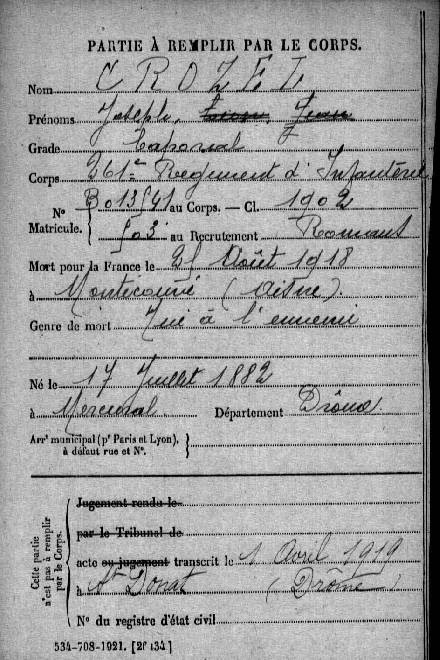 PARTIE À REMPLIR PAR LE CORPS.
Nom CROZEL
Prénoms Joseph, Jean
Grade Caporal
Corps 261e Regiment d'Infanterie
N° Matricule. B013541 au Corps. — Cl. 1902
503 au Recrutement Romans
Mort pour la France le 25 Août 1918
à (Aisne)
Genre de mort Tué à l'ennemi
Né le 17 Juillet 1882
à Mercurol Département Drôme
Arr' municipal (p' Paris et Lyon), à défaut rue et N°.
Cette partie n'est pas à remplir par le Corps.
Jugement rendu le
par le Tribunal de
acte ou jugement transcrit le 1 Avril 1919
à St Donat (Drôme)
N° du registre d'état civil
534-708-1921. [2f 134]